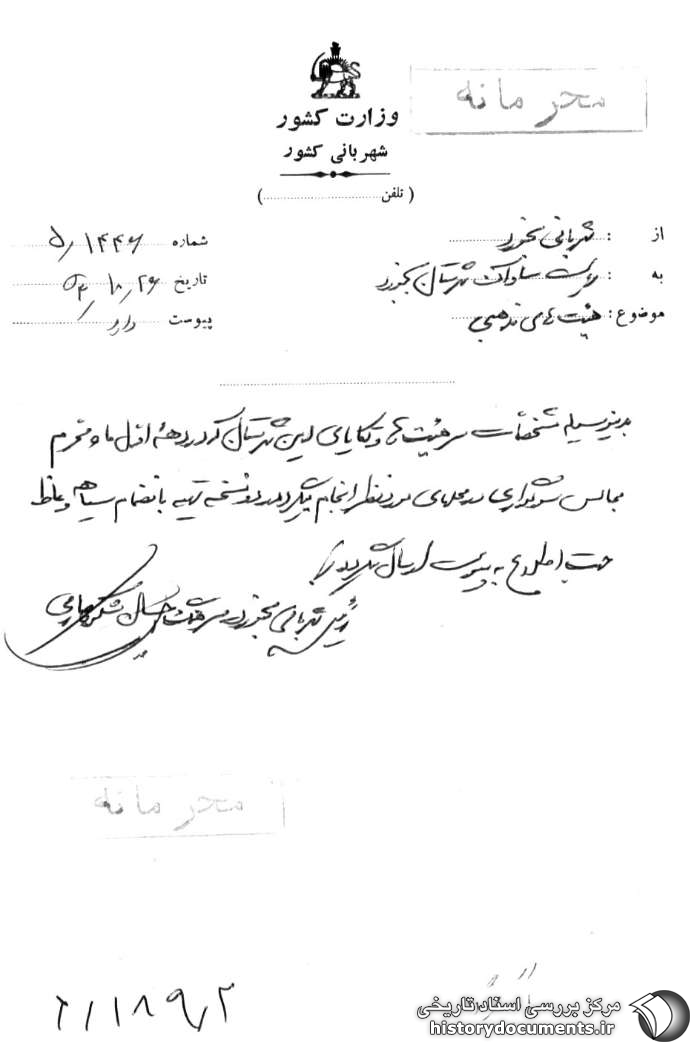 محرمانه
وزارت کشور
شهربانی کشور
( تلفن ............ )
از : شهربانی بجنورد
شماره ۵/۱۴۴۶
به : ریاست ساواک شهرستان بجنورد
تاریخ ۵۴/۱۰/۲۶
موضوع : هیئت های مذهبی
پیوست دارد
بدینوسیله مشخصات سرهیئت ها و تکایای این شهرستان که در دهه اول ماه محرم
مجالس سوگواری در محلهای مورد نظر انجام میگیرد در دو نسخه تهیه بانضمام سیاهه وعاظ
جهت اطلاع به پیوست ارسال میگردد
رئیس شهربانی بجنورد سرهنگ
محرمانه
۲/۱۸۹۲
مرکز بررسی اسناد تاریخی
historydocuments.ir